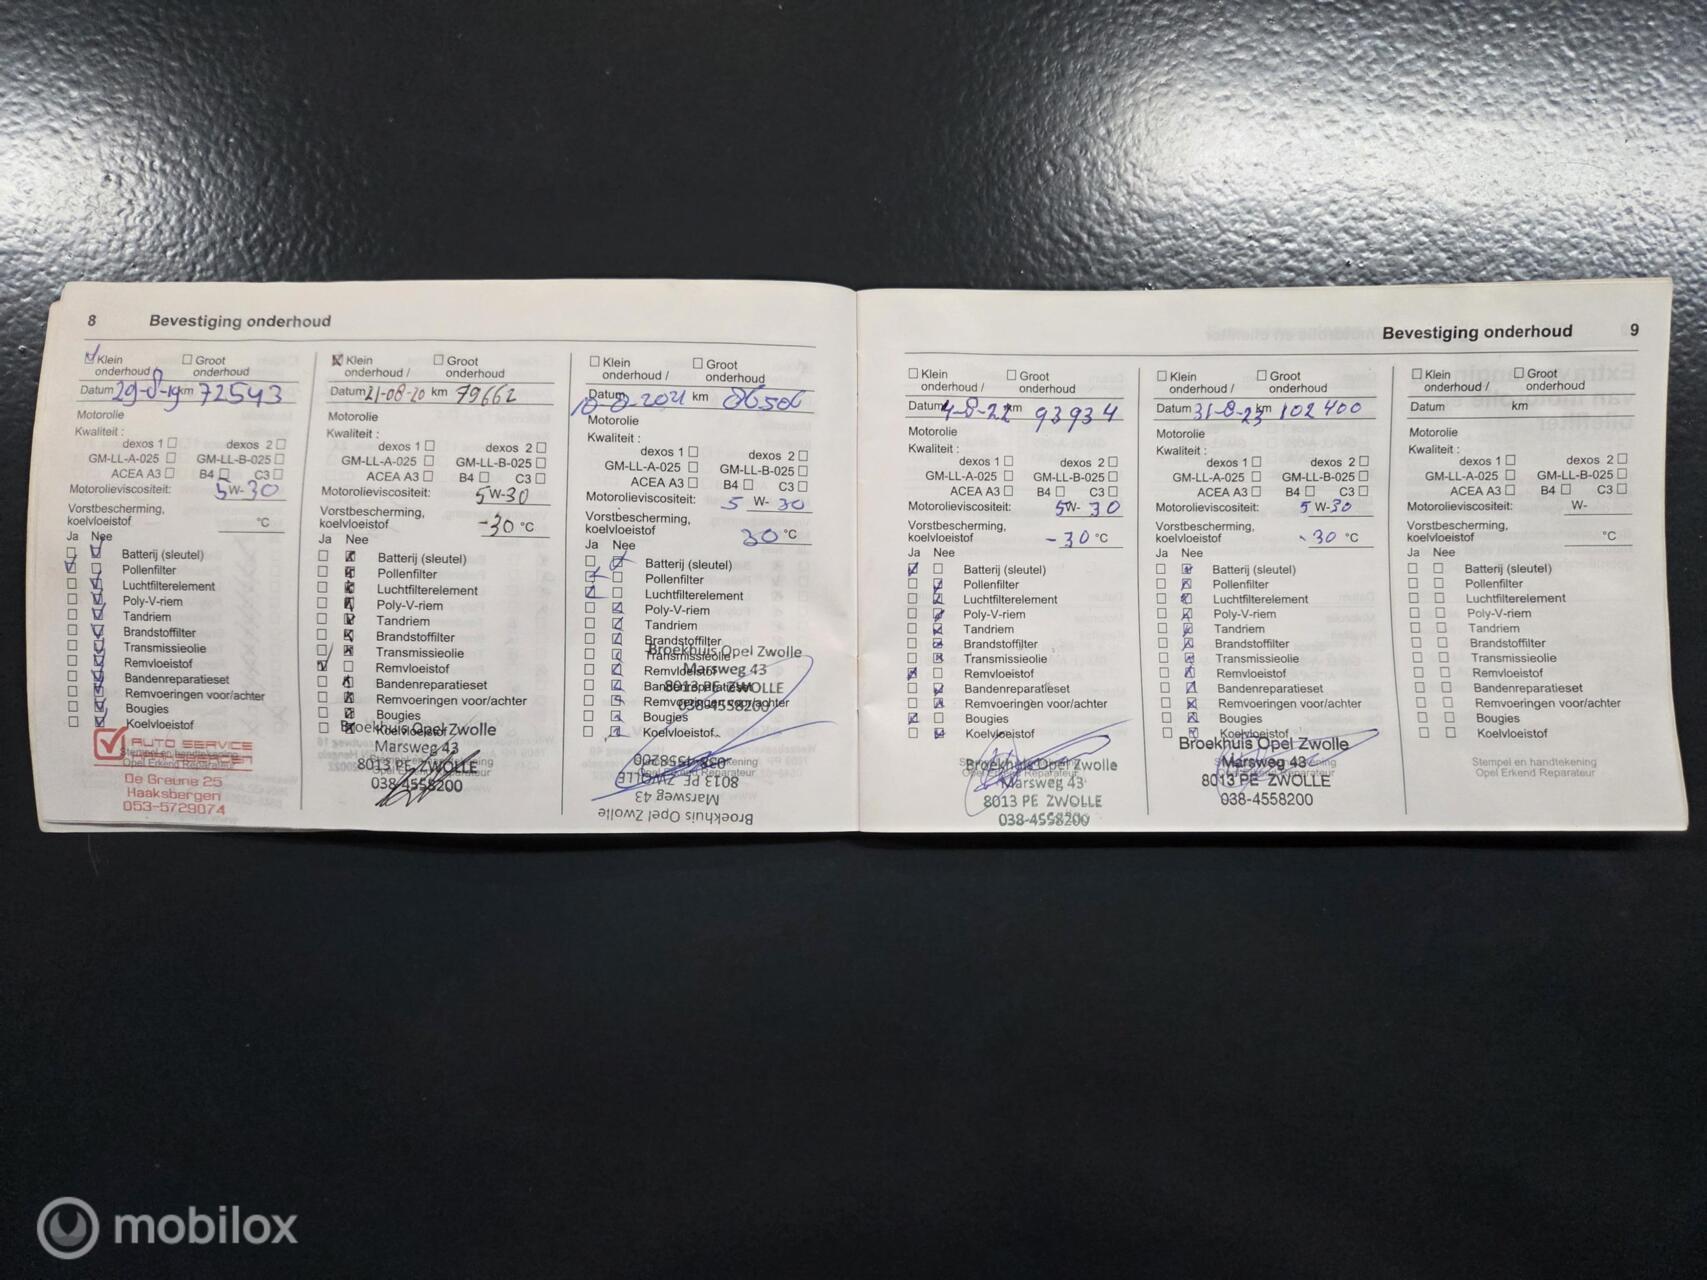 8 Bevestiging onderhoud
Klein onderhoud Groot onderhoud
Datum 29-8-19 km 72543
Motorolie
Kwaliteit :
dexos 1 dexos 2
GM-LL-A-025 GM-LL-B-025
ACEA A3 B4 C3
Motorolieviscositeit: 5W-30
Vorstbescherming,
koelvloeistof °C
Ja Nee
Batterij (sleutel)
Pollenfilter
Luchtfilterelement
Poly-V-riem
Tandriem
Brandstoffilter
Transmissieolie
Remvloeistof
Bandenreparatieset
Remvoeringen voor/achter
Bougies
Koelvloeistof
AUTO SERVICE
HAAKSBERGEN
Stempel en handtekening
Opel Erkend Reparateur
De Greune 25
Haaksbergen
053-5729074
Klein onderhoud / Groot onderhoud
Datum 21-08-20 km 79662
Motorolie
Kwaliteit :
dexos 1 dexos 2
GM-LL-A-025 GM-LL-B-025
ACEA A3 B4 C3
Motorolieviscositeit: 5W-30
Vorstbescherming,
koelvloeistof -30 °C
Ja Nee
Batterij (sleutel)
Pollenfilter
Luchtfilterelement
Poly-V-riem
Tandriem
Brandstoffilter
Transmissieolie
Remvloeistof
Bandenreparatieset
Remvoeringen voor/achter
Bougies
Koelvloeistof
Broekhuis Opel Zwolle
Marsweg 43
8013 PE ZWOLLE
038-4558200
Klein onderhoud / Groot onderhoud
Datum 10-8-2021 km 86506
Motorolie
Kwaliteit :
dexos 1 dexos 2
GM-LL-A-025 GM-LL-B-025
ACEA A3 B4 C3
Motorolieviscositeit: 5 W- 30
Vorstbescherming,
koelvloeistof 30 °C
Ja Nee
Batterij (sleutel)
Pollenfilter
Luchtfilterelement
Poly-V-riem
Tandriem
Brandstoffilter
Transmissieolie
Remvloeistof
Bandenreparatieset
Remvoeringen voor/achter
Bougies
Koelvloeistof
Broekhuis Opel Zwolle
Marsweg 43
8013 PE ZWOLLE
038-4558200
038-4558200
8013 PE ZWOLLE
Marsweg 43
Broekhuis Opel Zwolle
Bevestiging onderhoud 9
Klein onderhoud / Groot onderhoud
Datum 4-8-22 km 93934
Motorolie
Kwaliteit :
dexos 1 dexos 2
GM-LL-A-025 GM-LL-B-025
ACEA A3 B4 C3
Motorolieviscositeit: 5W- 30
Vorstbescherming,
koelvloeistof -30 °C
Ja Nee
Batterij (sleutel)
Pollenfilter
Luchtfilterelement
Poly-V-riem
Tandriem
Brandstoffilter
Transmissieolie
Remvloeistof
Bandenreparatieset
Remvoeringen voor/achter
Bougies
Koelvloeistof
Broekhuis Opel Zwolle
Marsweg 43
8013 PE ZWOLLE
038-4558200
Klein onderhoud / Groot onderhoud
Datum 31-8-23 km 102400
Motorolie
Kwaliteit :
dexos 1 dexos 2
GM-LL-A-025 GM-LL-B-025
ACEA A3 B4 C3
Motorolieviscositeit: 5 W-30
Vorstbescherming,
koelvloeistof -30 °C
Ja Nee
Batterij (sleutel)
Pollenfilter
Luchtfilterelement
Poly-V-riem
Tandriem
Brandstoffilter
Transmissieolie
Remvloeistof
Bandenreparatieset
Remvoeringen voor/achter
Bougies
Koelvloeistof
Broekhuis Opel Zwolle
Marsweg 43
8013 PE ZWOLLE
038-4558200
Klein onderhoud / Groot onderhoud
Datum km
Motorolie
Kwaliteit :
dexos 1 dexos 2
GM-LL-A-025 GM-LL-B-025
ACEA A3 B4 C3
Motorolieviscositeit: W-
Vorstbescherming,
koelvloeistof °C
Ja Nee
Batterij (sleutel)
Pollenfilter
Luchtfilterelement
Poly-V-riem
Tandriem
Brandstoffilter
Transmissieolie
Remvloeistof
Bandenreparatieset
Remvoeringen voor/achter
Bougies
Koelvloeistof
Stempel en handtekening
Opel Erkend Reparateur
mobilox